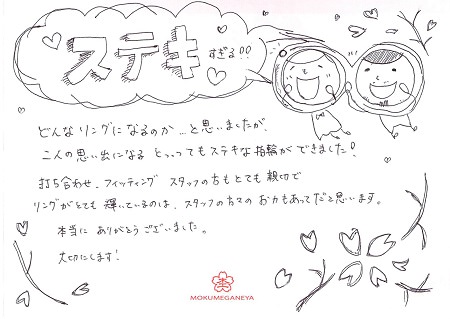 ステキすぎる!!
どんなリングになるのか…と思いましたが、
二人の思い出になる とっってもステキな指輪ができました!
打ち合わせ、フィッティング スタッフの方もとても親切で
リングがとても輝いているのは、スタッフの方々のお力もあってだと思います。
本当に ありがとうございました。
大切にします!
MOKUMEGANEYA